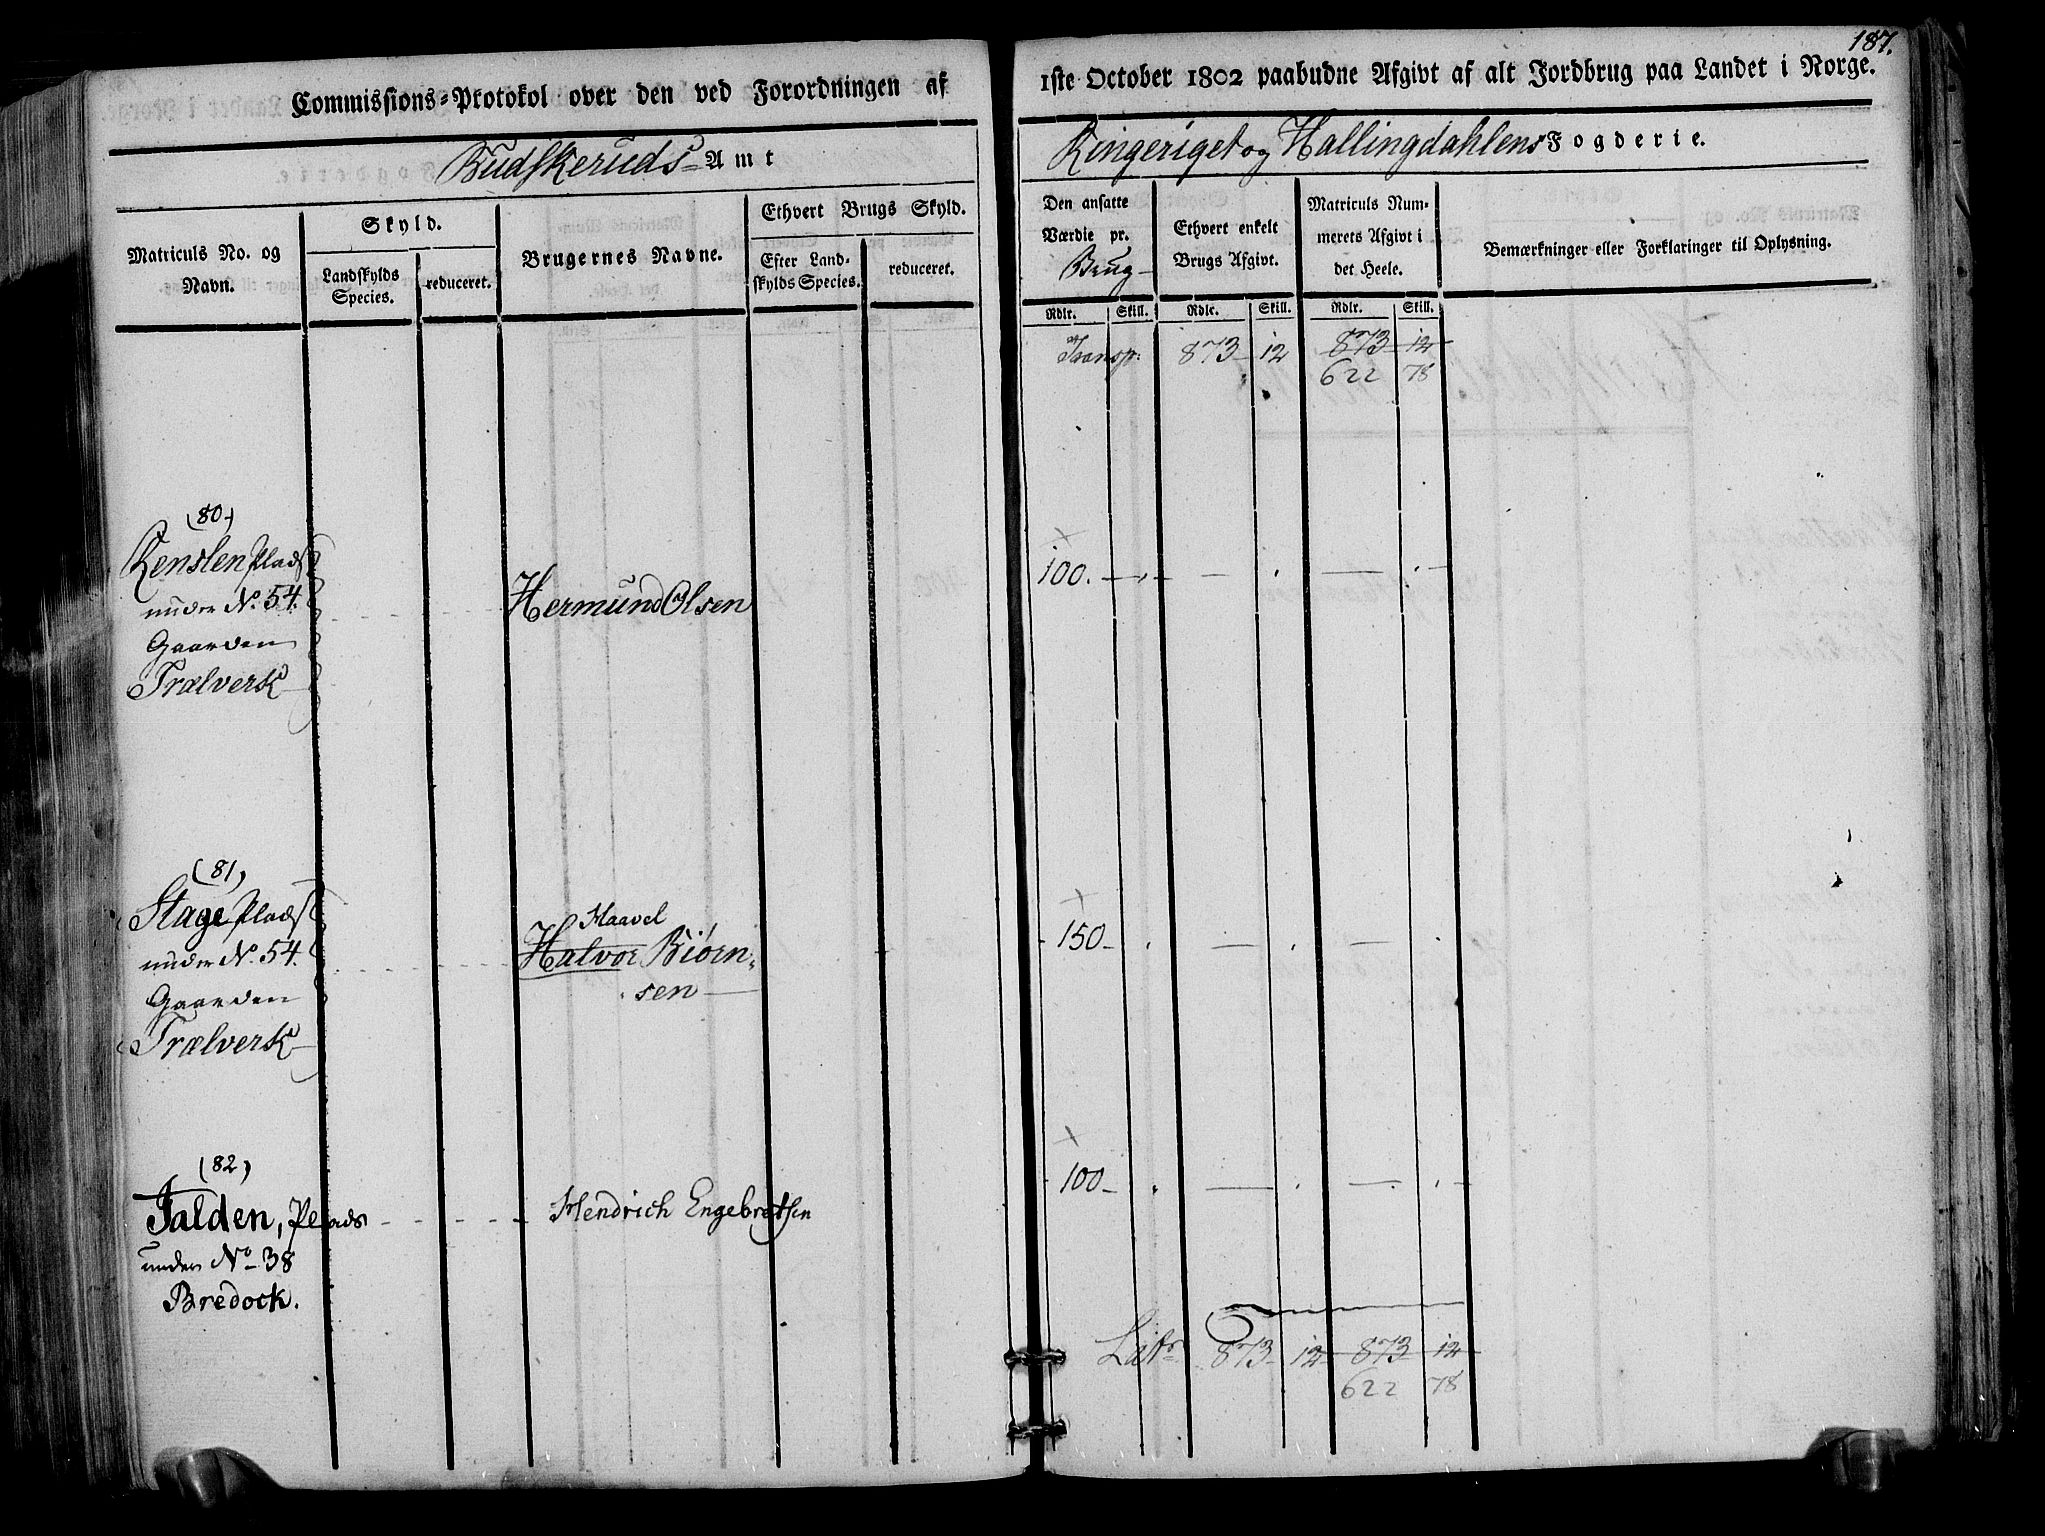 187.
Commissions-Protokol over den ved Forordningen af 1ste October 1802 paabudne Afgivt af alt Jordbrug paa Landet i Norge.
Budskeruds Amt
Ringeriget og Hallingdahlens Fogderie.
Matriculs No. og Navn.
Skyld.
Landskylds Species.
reduceret.
Brugernes Navne.
Ethvert Brugs Skyld.
Efter Landskylds Species.
reduceret.
Den ansatte Værdie pr. Brug
Ethvert enkelt Brugs Afgivt.
Matriculs Nummerets Afgivt i det Heele.
Bemærkninger eller Forklaringer til Oplysning.
Rdlr. Skill. Rdlr. Skill. Rdlr. Skill.
Transp: 873 12 873 12
622 78
(80)
Renslen Plads
under No. 54.
Gaarden
Trælverk
Hermund Olsen
100.
(81)
Stage Plads
under No. 54.
Gaarden
Trælverk
Haavel
Halvor Biørn-
sen
150
(82)
Talden, Plads
under No 38
Bredock.
Hendrich Engebretsen
100
Latr 873 12 873 12
622 78